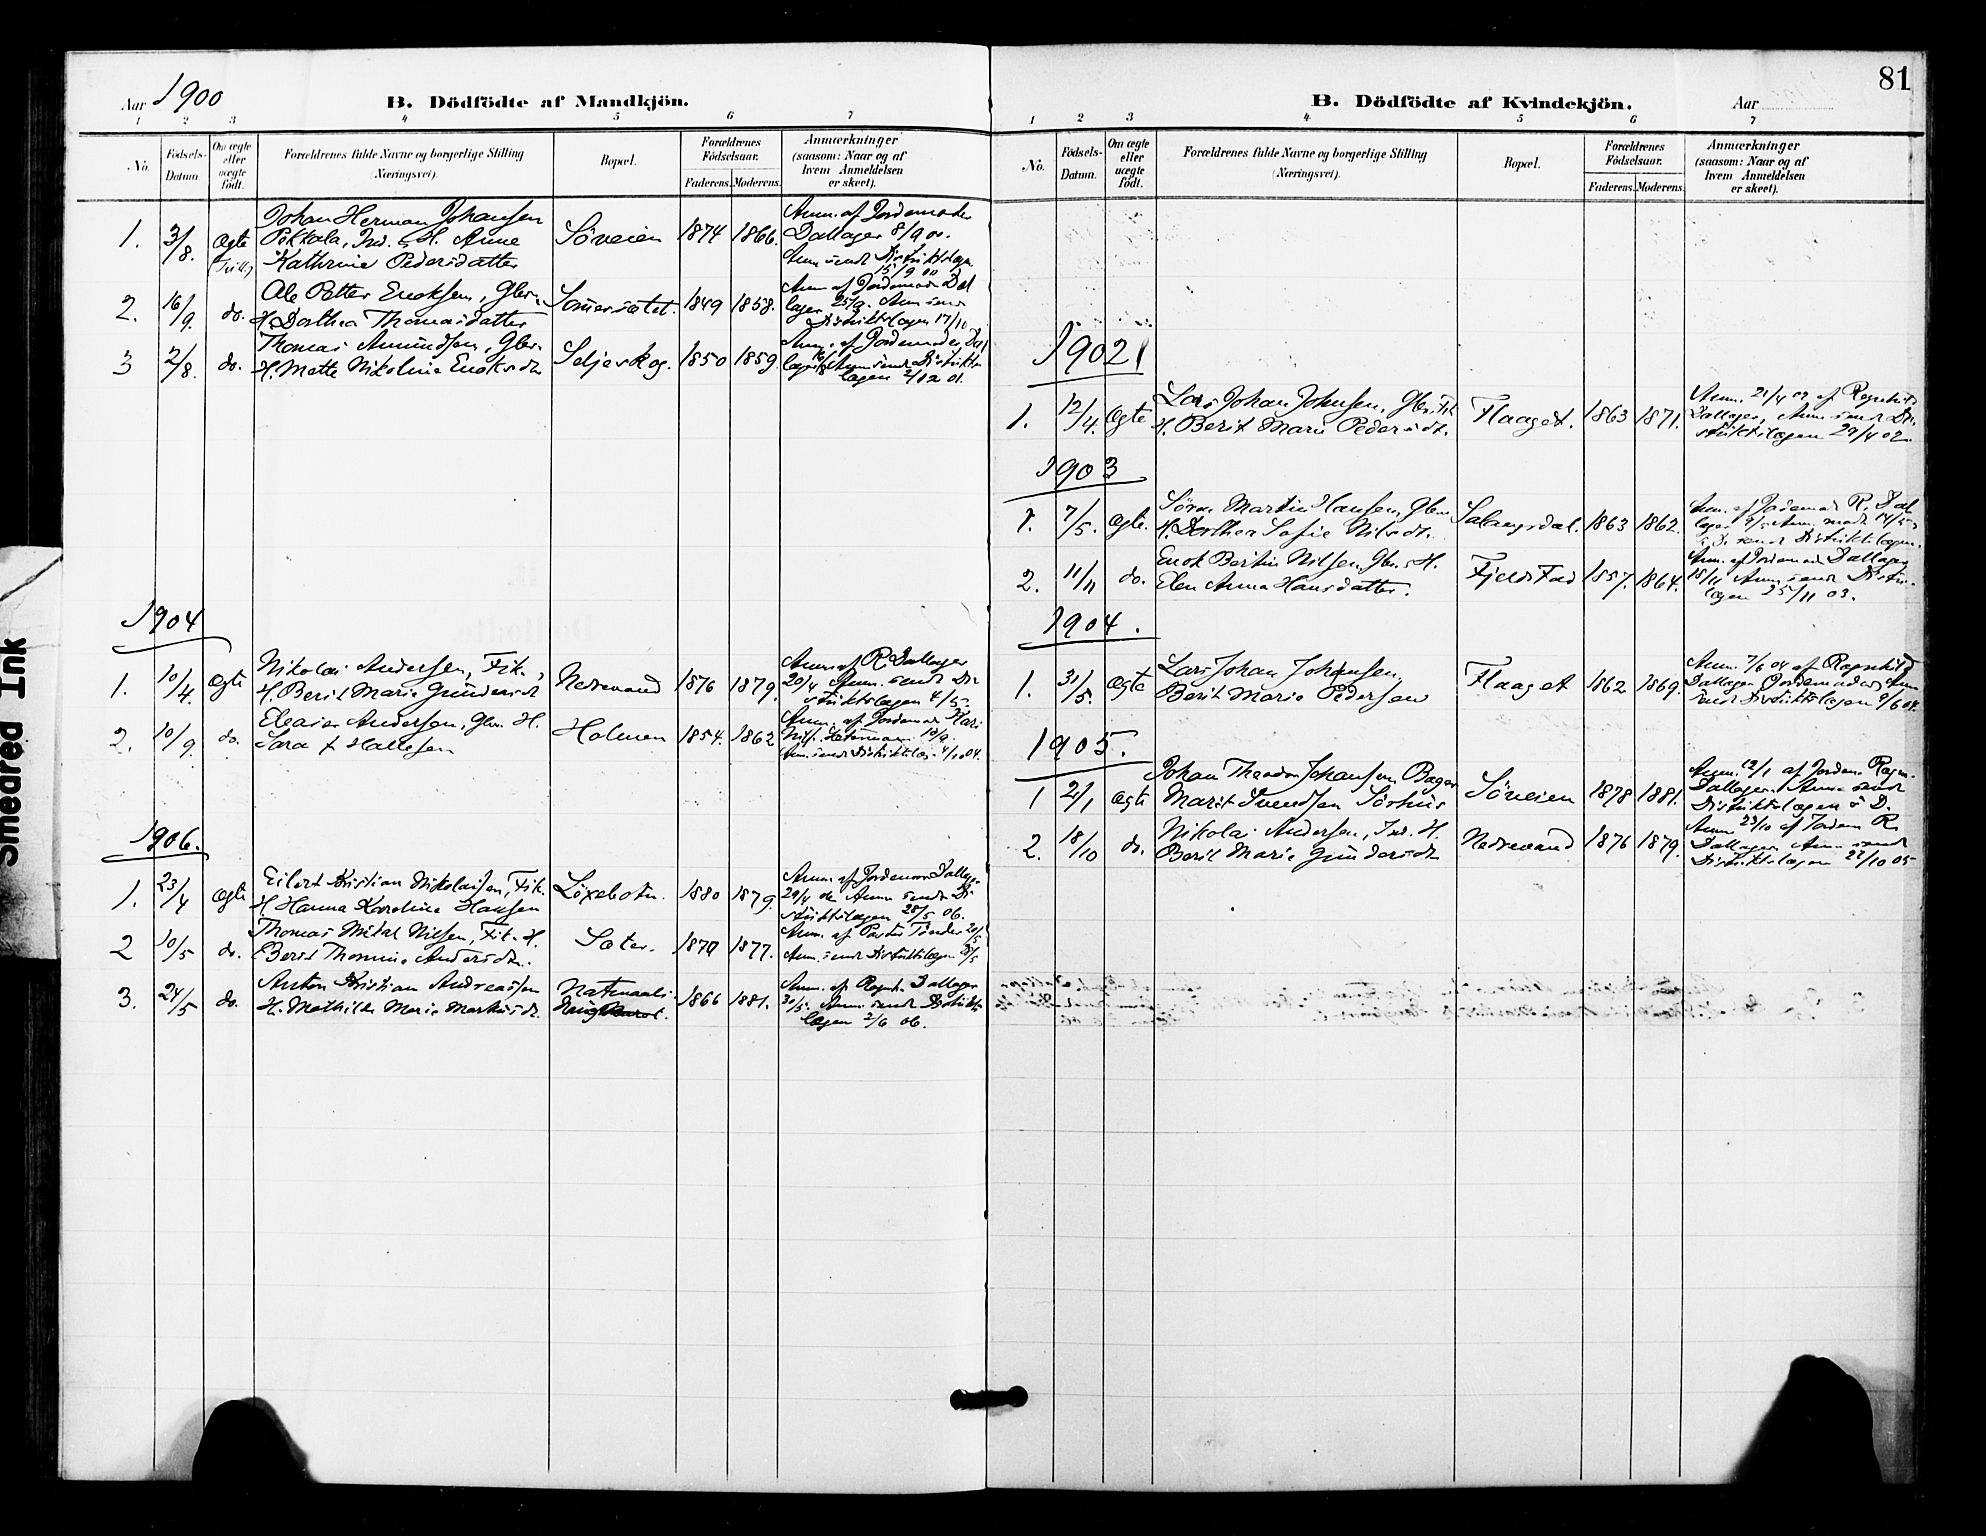 Aar 1900
B. Dödfödte af Mandkjön.
1 2 3 4 5 6 7
No. Födsels-Datum. Om ægte eller uægte födt. Forældrenes fulde Navne og borgerlige Stilling (Næringsvei). Bopæl. Forældrenes Födselsaar. Faderens. Moderens. Anmærkninger (saasom: Naar og af hvem Anmeldelsen er skeet).
1. 3/8. Ægte Johan Herman Johansen
Pokkala, Ind. H. Anne
Kathrine Pedersdatter
Söveien 1874 1866. Anm. af Jordemoder
Dallager 8/9 00.
Anm. sendt Distriktslægen
15/9 00
2. 16/9. do. Ole Petter Enoksen, Gbr.
H. Dorthea Thomasdatter
1849 1858. Anm af Jordemoder Dallager 25/9. Anm send
Distriktslægen 17/10
3 2/8. do. Thomas Amundsen, Gbr.
H. Mette Nikoline Enoksdtr
Seljeskog. 1850 1859. Anm. af Jordemoder Dallager Anm sendt Distriktslægen 2/02 01.
1904
1. 10/4. Ægte Nikolai Andersen, Fik.,
H. Berit Marie Gundersdtr
Nedrevand 1876 1879. Anm. af R. Dallager
20/4 Anm. sendt Distriktslægen 4/5.
2. 10/9. do. Eleasar Andersen, Gbr. H.
Sara Hallesen
Holmen 1854. 1862 Anm. af Jordemor
10/9.
Anm. sendt Distriktslæ. 4/10 04.
1906.
1. 23/4 Ægte Eilert Kristian Nikolaisen, Fik.
H. Hanna Karoline Hansen
Löxebotn. 1880 1879. Anm. af Jordemor Dallager
29/4 06 Anm sendt Distriktslægen 28/5 06.
2 10/5 do. Thomas Mikal Nilsen, Fik. H.
Berit Thomine Andersdtr.
Sæter. 1877. Anm. af Pastor Tönder
Anm. sendt Distriktslægen
3. 24/5 do. Anton Kristian Andreassen
H. Mathilde Marie Markusdr.
1866 1881. Anm. af Ragnh. Dallager
30/5. Anm sendt Distriktslægen 2/6 06.
81
B. Dödfödte af Kvindekjön.
Aar
1 2 3 4 5 6 7
No. Födsels-Datum. Om ægte eller uægte födt. Forældrenes fulde Navne og borgerlige Stilling (Næringsvei). Bopæl. Forældrenes Födselsaar. Faderens. Moderens. Anmærkninger (saasom: Naar og af hvem Anmeldelsen er skeet).
1902
1. 12/4. Ægte Lars Johan Johnsen, Gbr., Fik
H. Berit Marie Pedersdt.
Flaaget. 1863 1871. Anm. 21/4 02 af Ragnhild
Dallager, Anm sendt Distriktslægen 29/4 02
1903
1. 7/5. Ægte. Sören Martin Hansen, Gbr
H. Dorthea Sofie Nilsdt.
Salangsdal. 1863 1862. Anm. af Jordemod R. Dallager
sendt Distriktslægen.
2. 11/11 do. Enok Bertin Nilsen, Gbr. H.
Elen Anna Hansdatter.
Fjeldstad 1857. 1864. Anm. af Jordemod Dallager
15/11 Anm sendt Distrikslægen 25/11 03.
1904.
1. 31/5. Ægte Lars Johan Johansen,
Berit Marie Pedersen
Flaaget 1862 1869. Anm. 7/6 04 af Ragnhild
Dallager Jordemoder, Anm
sendt Distriktslægen 9/6 04.
1905.
1 2/1 Ægte Johan Theodor Johansen, Bager
Marit Svendsen Sörhus
Söveien 1878 1881. Anm. 12/1 af Jordem. Ragn.
Dallager. Anm sendt
Distriktslægen s. D.
2. 18/10 do. Nikolai Andersen, Ind. H.
Berit Marie Gundersdtr
Nedrevand 1876 1879. Anm 23/10 af Jordem R.
Dallager Anm sendt
Distriktslægen 22/10 05
Smeared Ink